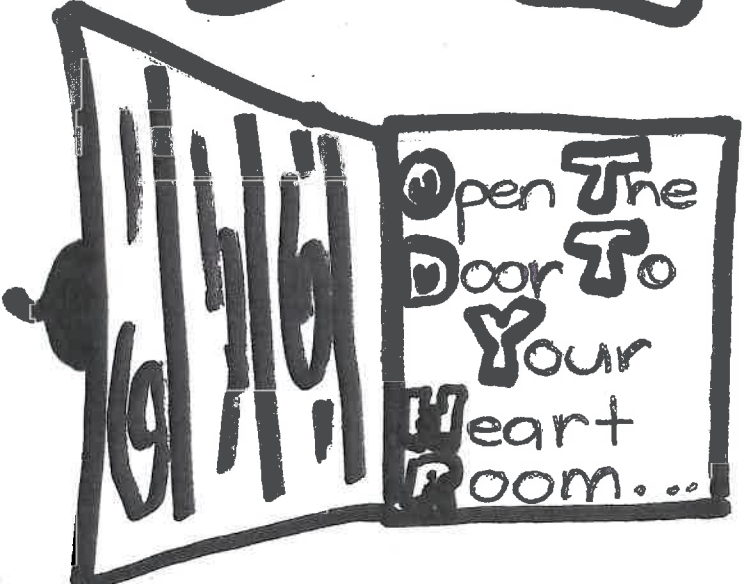 Open The
Door To
Your
Heart
Room...